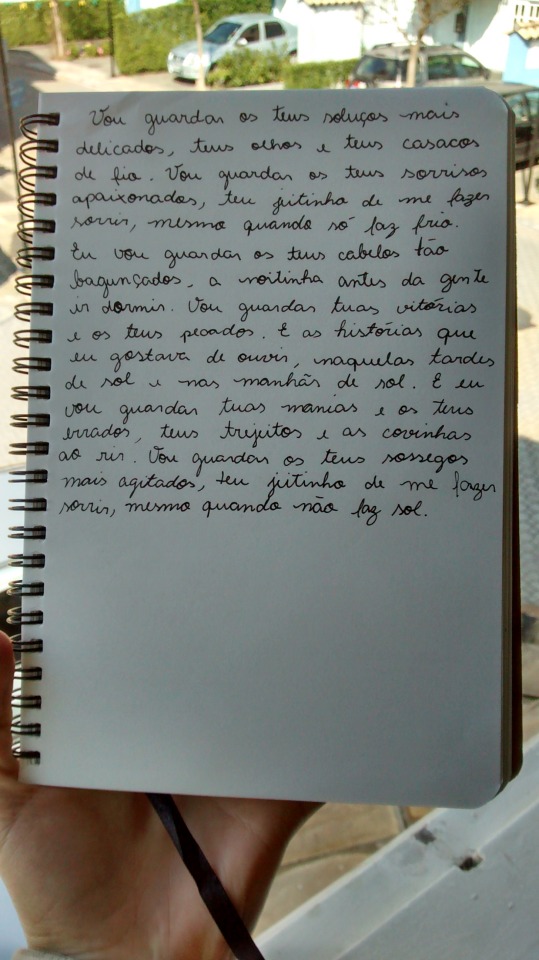 Vou guardar os teus soluços mais
delicados, teus olhos e teus casacos
de fio. Vou guardar os teus sorrisos
apaixonados, teu jeitinho de me fazer
sorrir, mesmo quando só faz frio.
Eu vou guardar os teus cabelos tão
bagunçados, a noitinha antes da gente
ir dormir. Vou guardar tuas vitórias
e os teus pecados. E as histórias que
eu gostava de ouvir, naquelas tardes
de sol e nas manhãs de sol. E eu
vou guardar tuas manias e os teus
errados, teus trejeitos e as covinhas
ao rir. Vou guardar os teus sossegos
mais agitados, teu jeitinho de me fazer
sorrir, mesmo quando não faz sol.